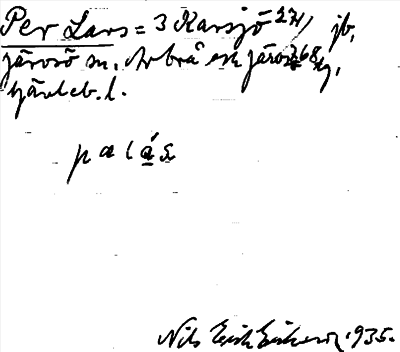 Per Lars = 3 Karsjö 271/ jb,
järvsö sn. Arbrå och järvsö 268 tg,
hjärteb. l.
palás
Nils Erik Eriksson 1935.